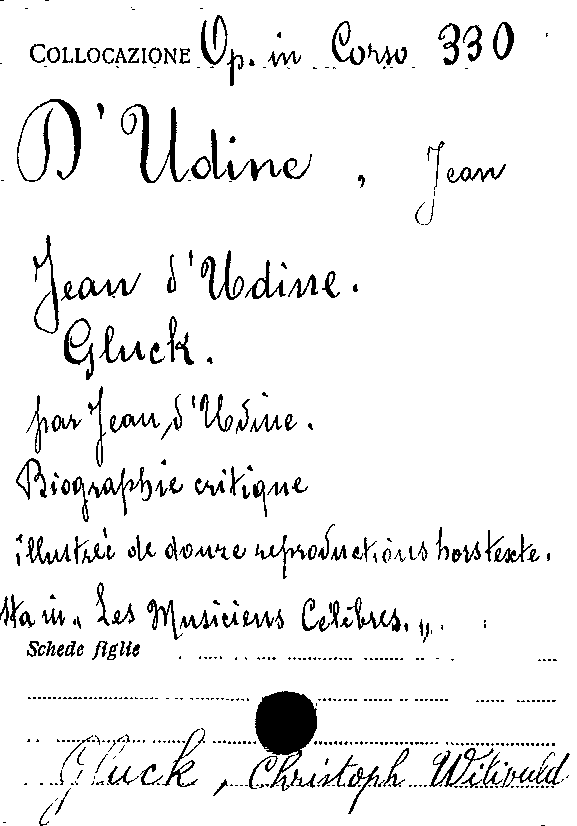 COLLOCAZIONE Op. in Corso 330
D'Udine, Jean
Jean d'Udine.
Gluck.
par Jean d'Udine.
Biographie critique
illustrée de douze reproductions hors texte.
Sta in „ Les Musiciens Célèbres. „.
Schede figlie
Gluck, Christoph Wilivald